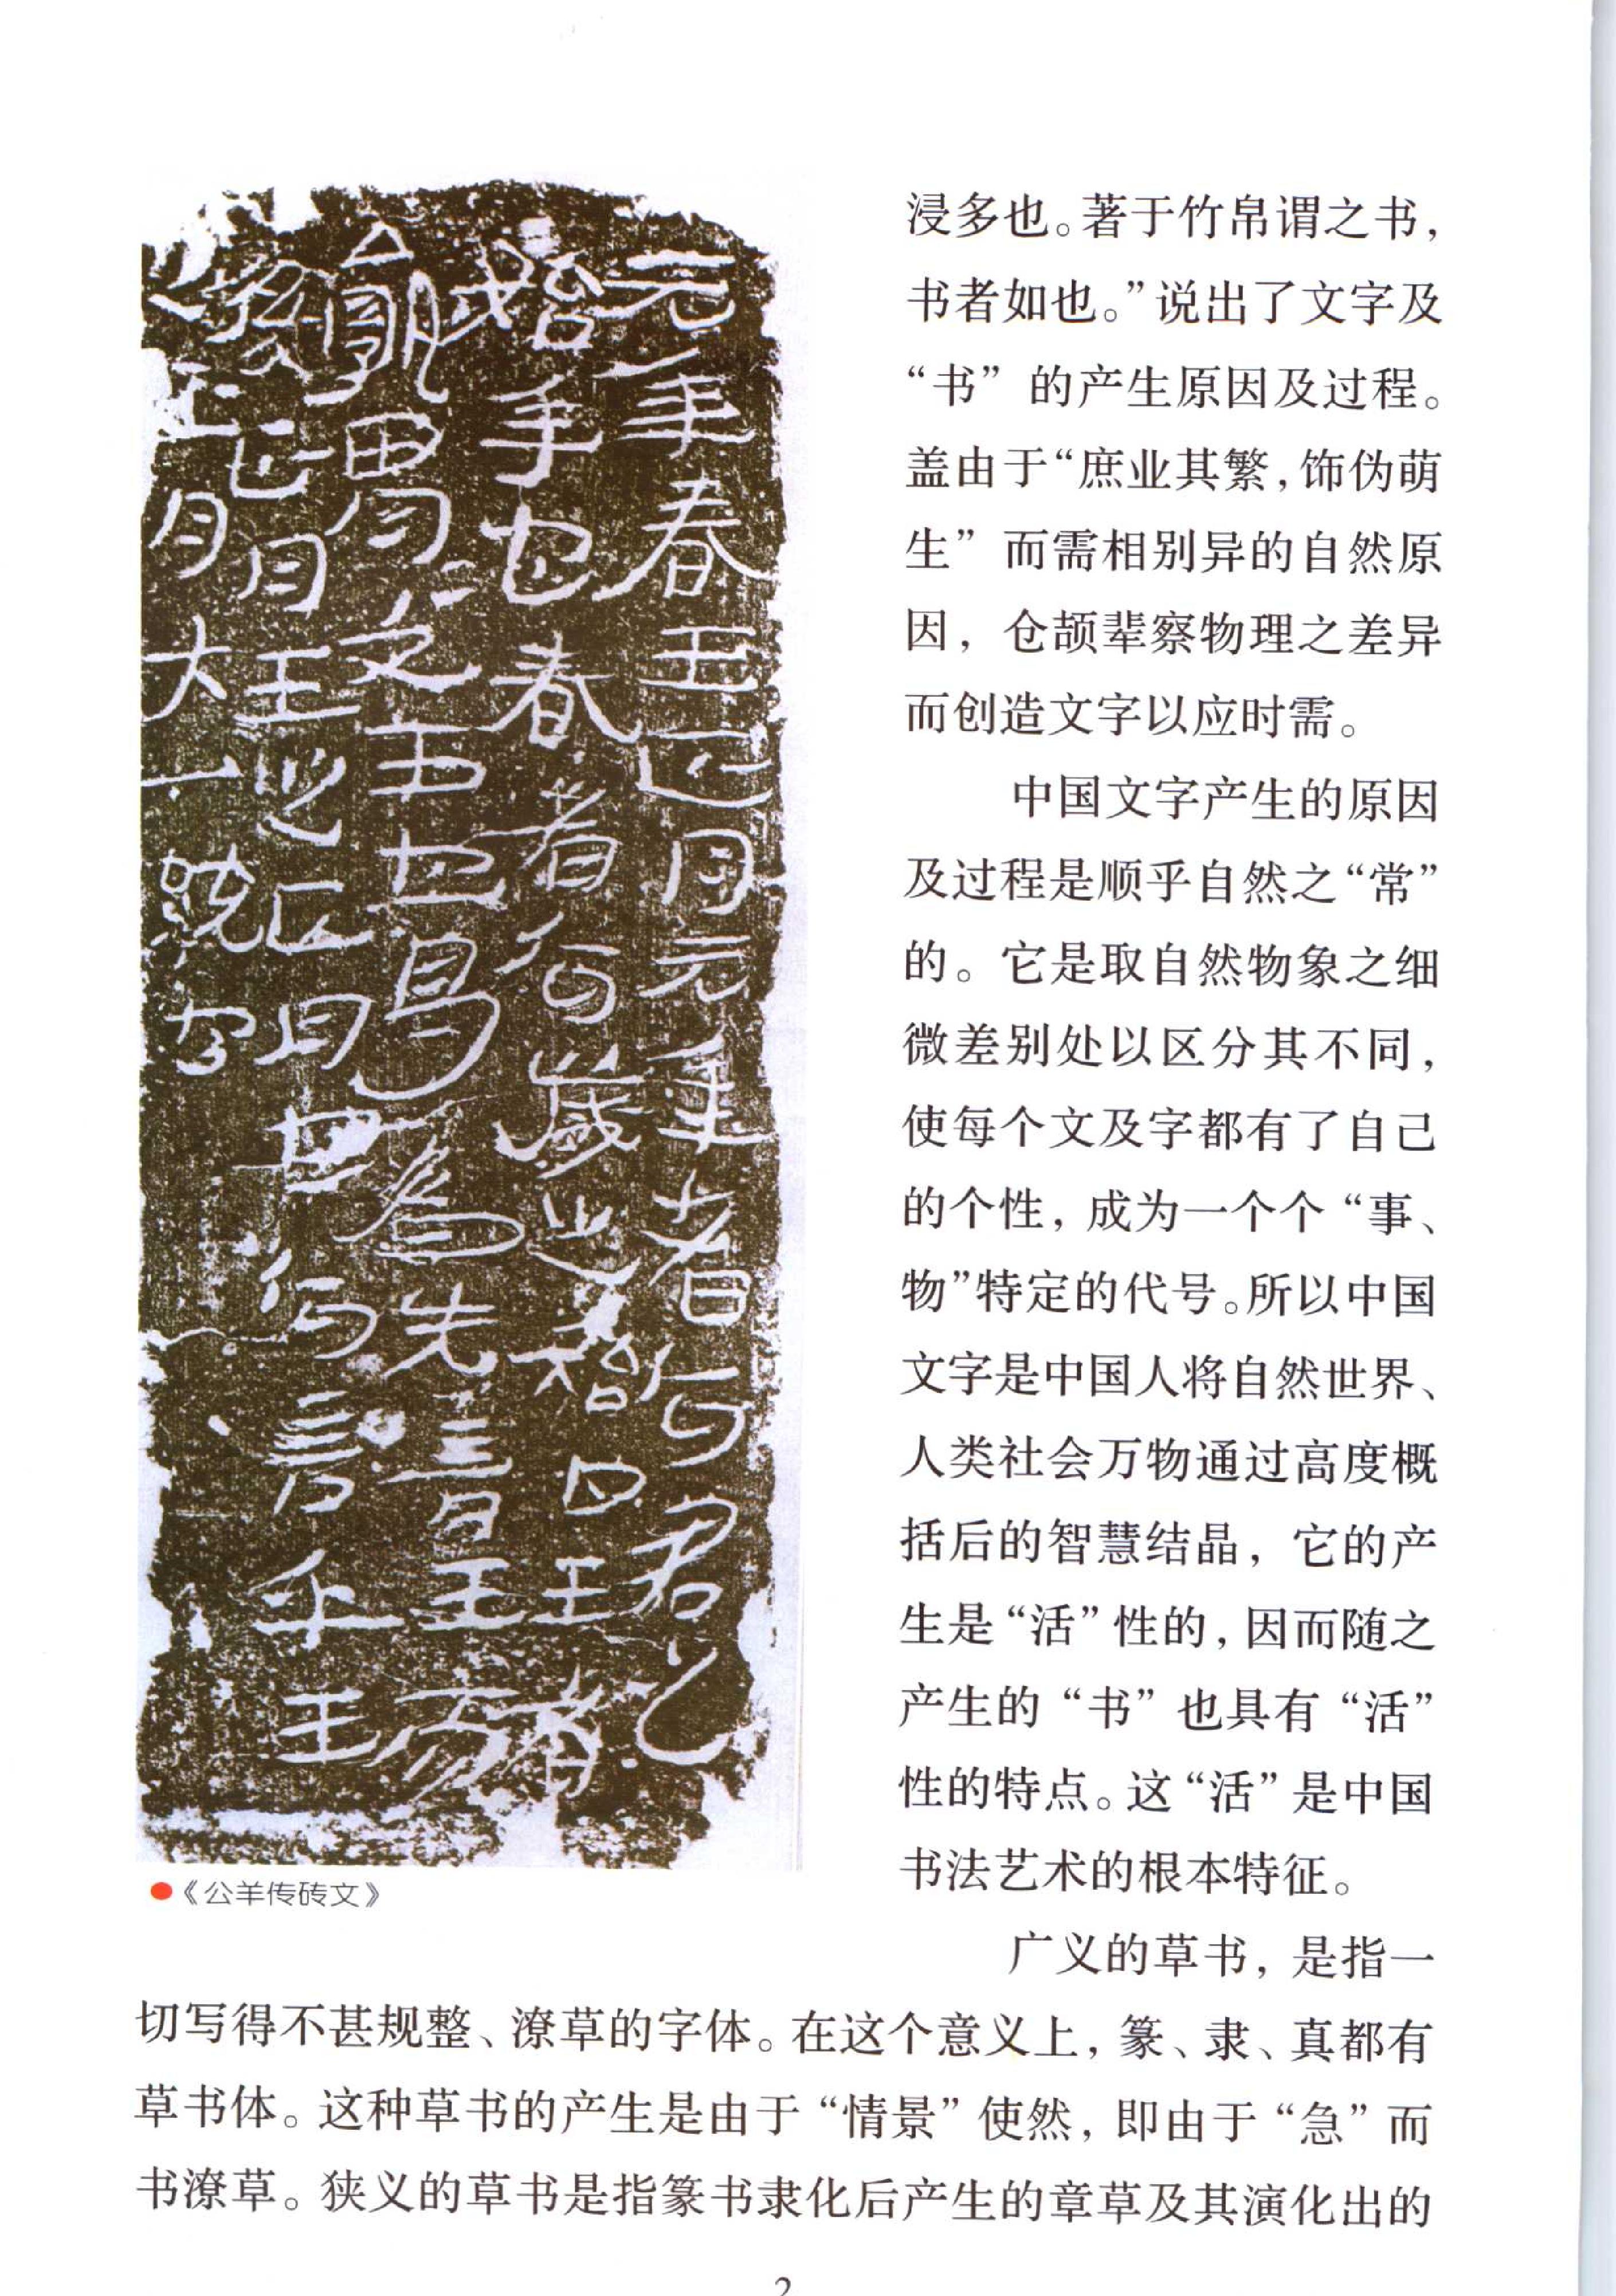 元年春王正月元年者何君之
始年也春者何歲之始也王者
孰胃胃之文王也曷為先言王而
後言正月王之正月也何言乎王
正月大一統也
浸多也。著于竹帛谓之书，
书者如也。”说出了文字及
“书”的产生原因及过程。
盖由于“庶业其繁，饰伪萌
生”而需相别异的自然原
因，仓颉辈察物理之差异
而创造文字以应时需。
中国文字产生的原因
及过程是顺乎自然之“常”
的。它是取自然物象之细
微差别处以区分其不同，
使每个文及字都有了自己
的个性，成为一个个“事、
物”特定的代号。所以中国
文字是中国人将自然世界、
人类社会万物通过高度概
括后的智慧结晶，它的产
生是“活”性的，因而随之
产生的“书”也具有“活”
性的特点。这“活”是中国
书法艺术的根本特征。
●《公羊传砖文》
广义的草书，是指一
切写得不甚规整、潦草的字体。在这个意义上，篆、隶、真都有
草书体。这种草书的产生是由于“情景”使然，即由于“急”而
书潦草。狭义的草书是指篆书隶化后产生的章草及其演化出的
2